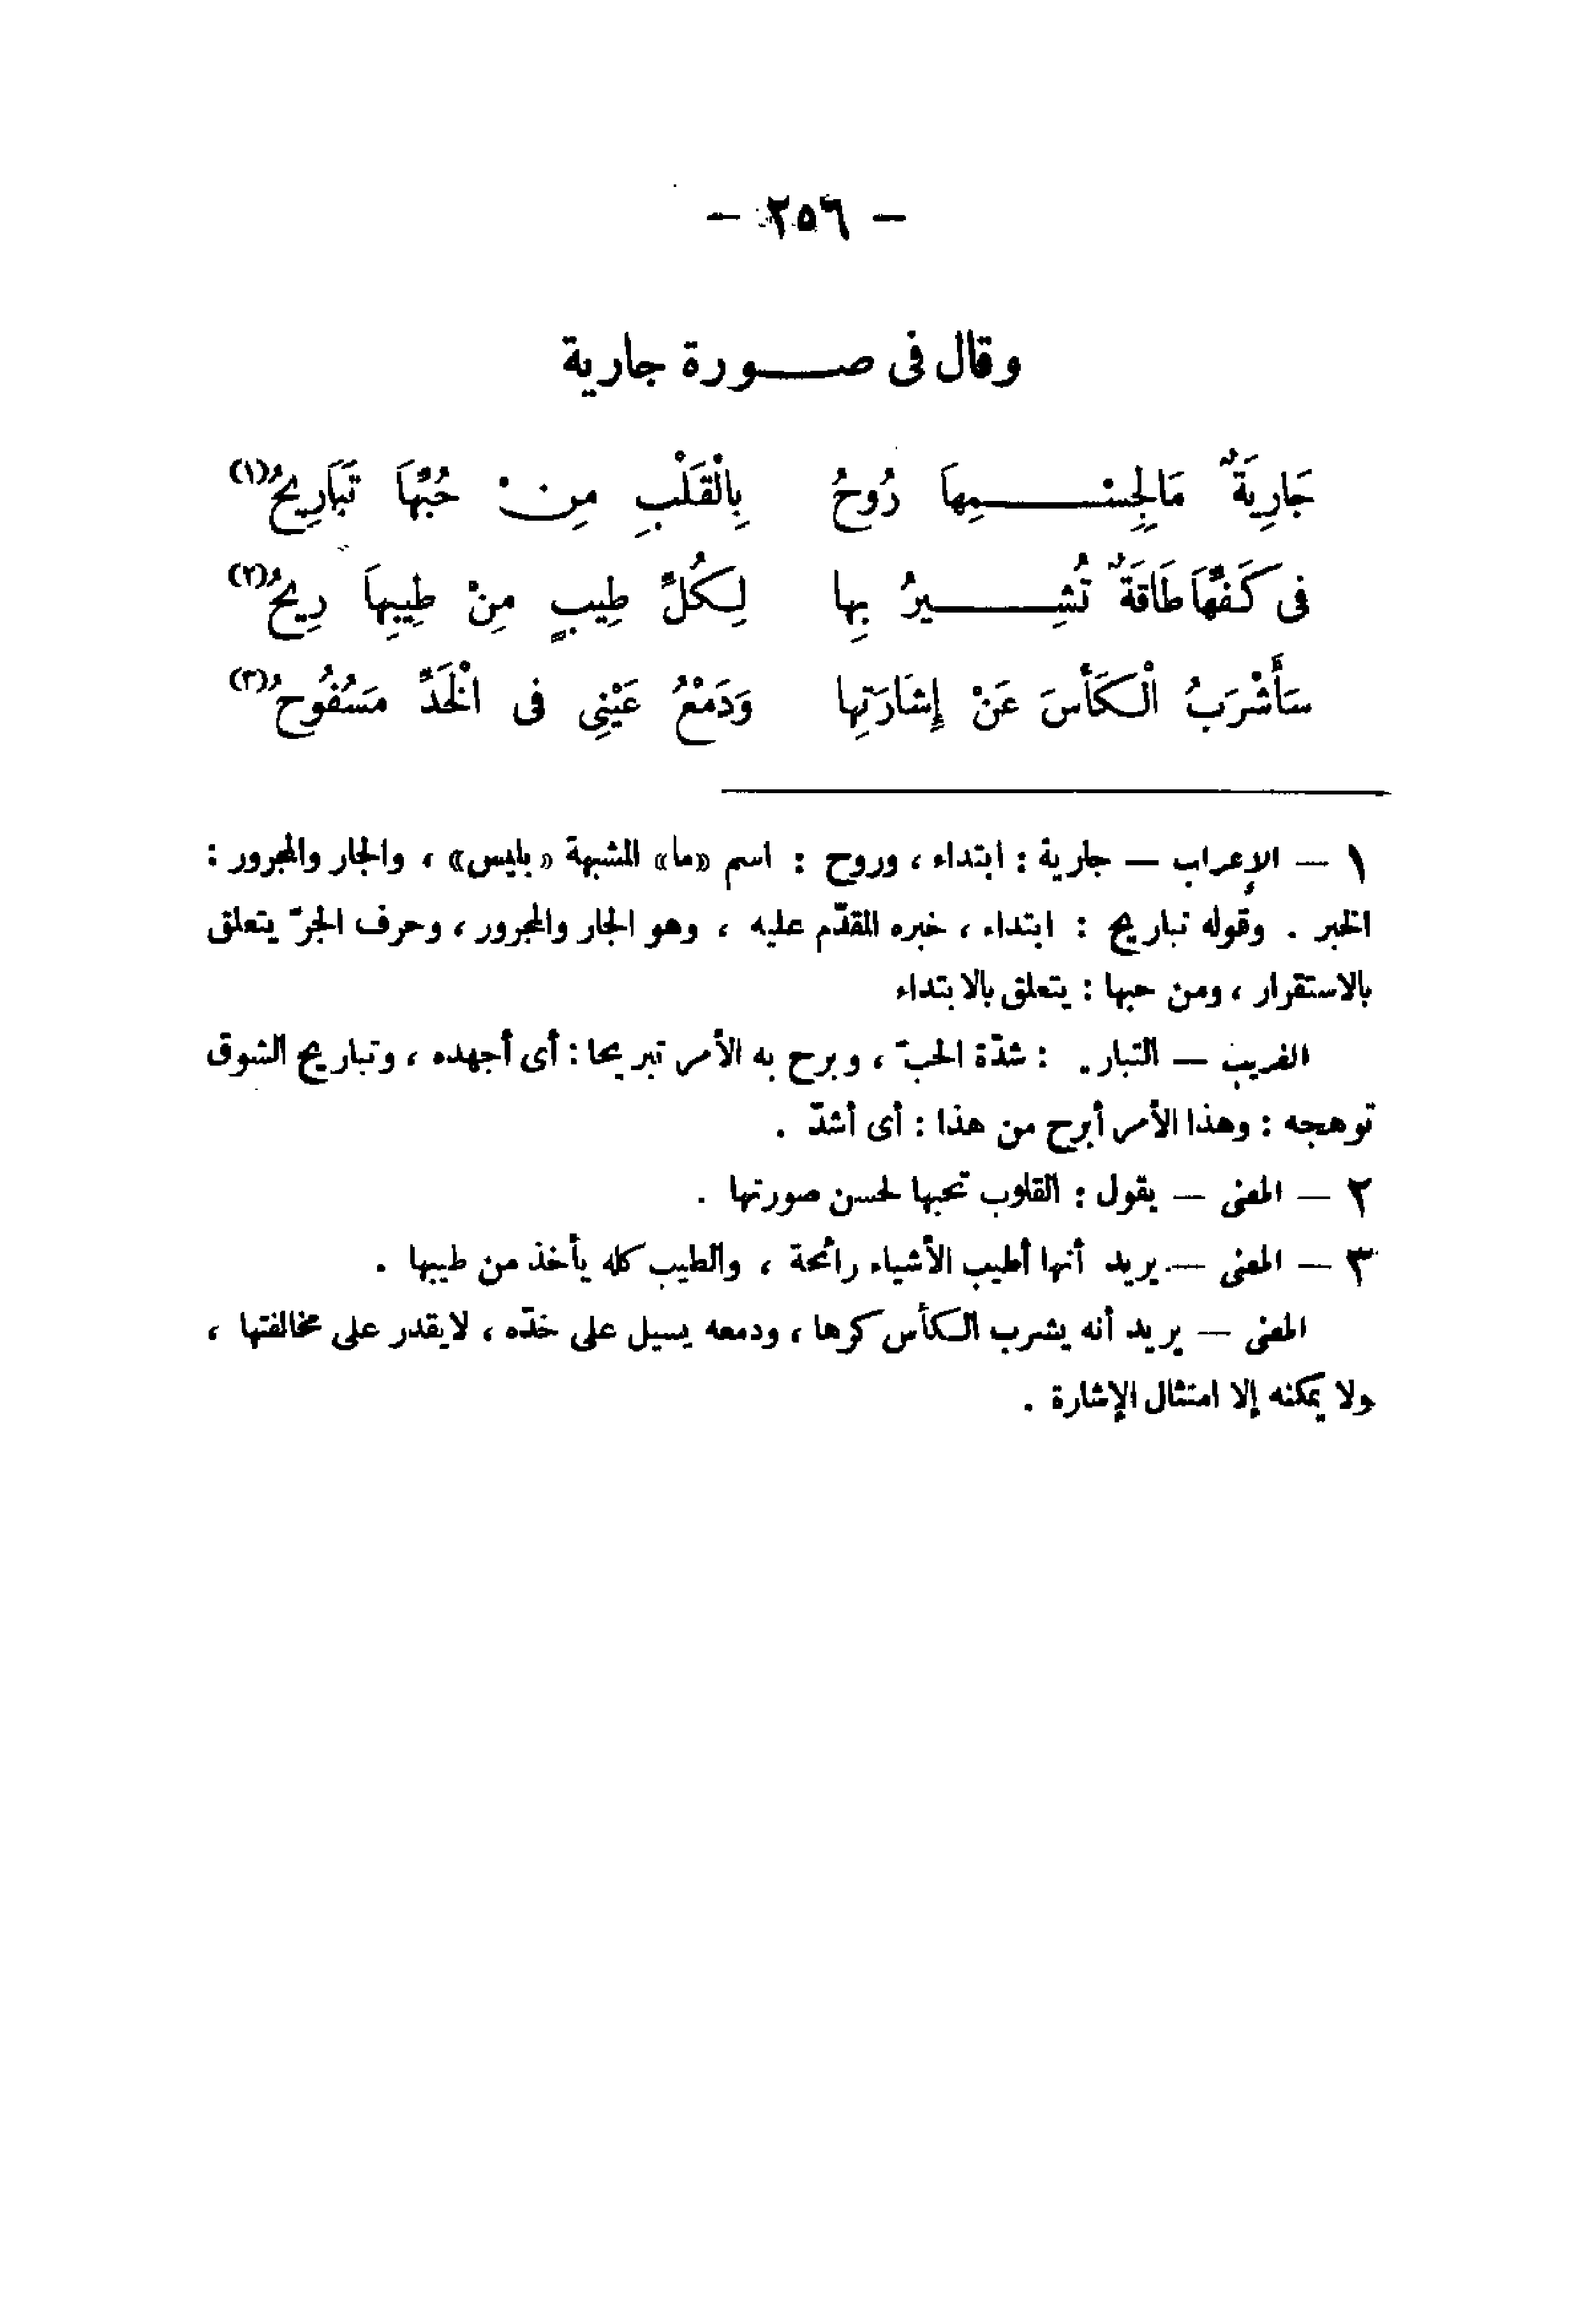 — ٢٥٦ —
وقال فى صـــورة جارية
جَارِيَةٌ مَالِجِسْـــمِهاَ رُوحُ بِالْقَلْبِ مِنْ حُبِّهاَ تَبَارِيحُ(١)
فى كَفِّهاَ طَاقَةٌ تُشِـــيرُ بِها لِـكُلِّ طِيبٍ مِنْ طِيبِهاَ رِيحُ(٢)
سَأَشْرَبُ الْـكَأْسَ عَنْ إِشَارَتِها وَدَمْعُ عَيْنِى فى الْخَدِّ مَسْفُوحُ(٣)
١ — الإعراب — جارية : ابتداء ، وروح : اسم «ما» المشبهة «بليس» ، والجار والمجرور :
الخبر . وقوله تباريح : ابتداء ، خبره المقدّم عليه ، وهو الجار والمجرور ، وحرف الجرّ يتعلق
بالاستقرار ، ومن حبها : يتعلق بالابتداء
الغريب — التبار . : شدّة الحبّ ، وبرح به الأمر تبريحا : أى أجهده ، وتباريح الشوق
توهجه : وهذا الأمر أبرح من هذا : أى أشدّ .
٢ — المعنى — يقول : القلوب تحبها لحسن صورتها .
٣ — المعنى — يريد أنها أطيب الأشياء رائحة ، والطيب كله يأخذ من طيبها .
المعنى — يريد أنه يشرب الـكأس كرها ، ودمعه يسيل على خدّه ، لايقدر على مخالفتها ،
ولا يمكنه إلا امتثال الإشارة .